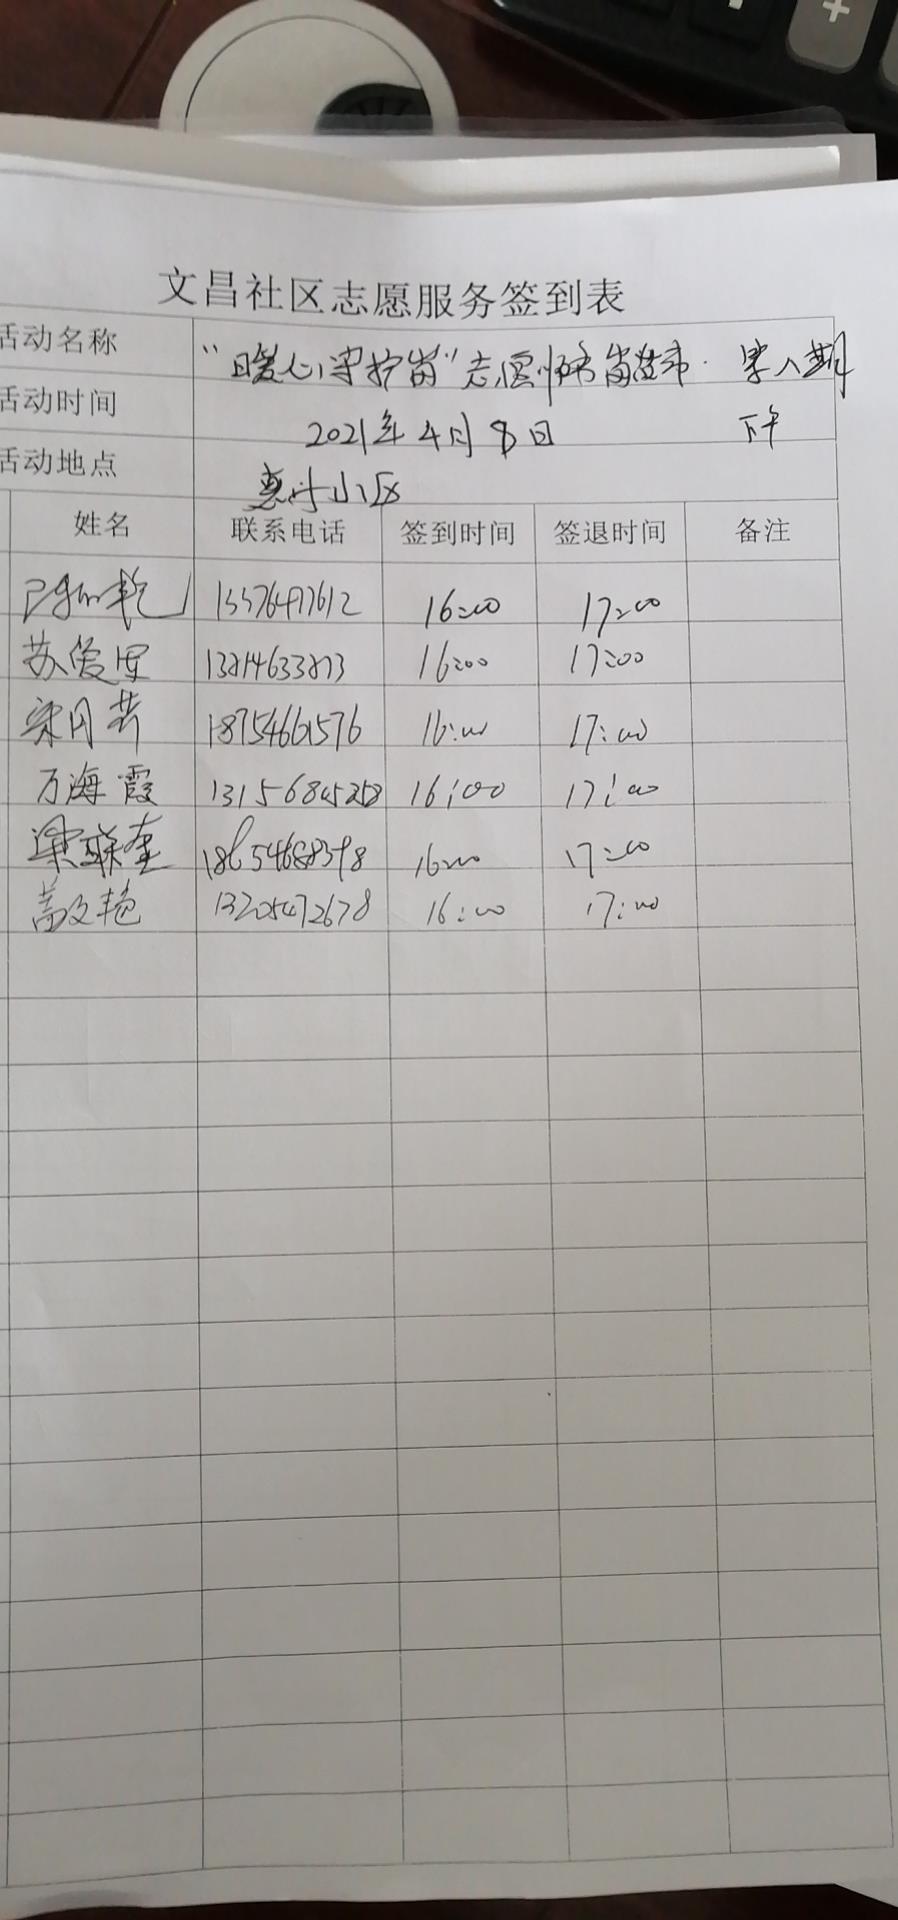 文昌社区志愿服务签到表
活动名称 "暖心守护岗"志愿 第八期
活动时间 2021年4月8日 下午
活动地点 惠 小区
姓名 联系电话 签到时间 签退时间 备注
16:00 17:00
苏爱军 16:00 17:00
宋月芹 18754661576 16:00 17:00
万海霞 16:00 17:00
梁联奎 16:00 17:00
盖文艳 13205472678 16:00 17:00